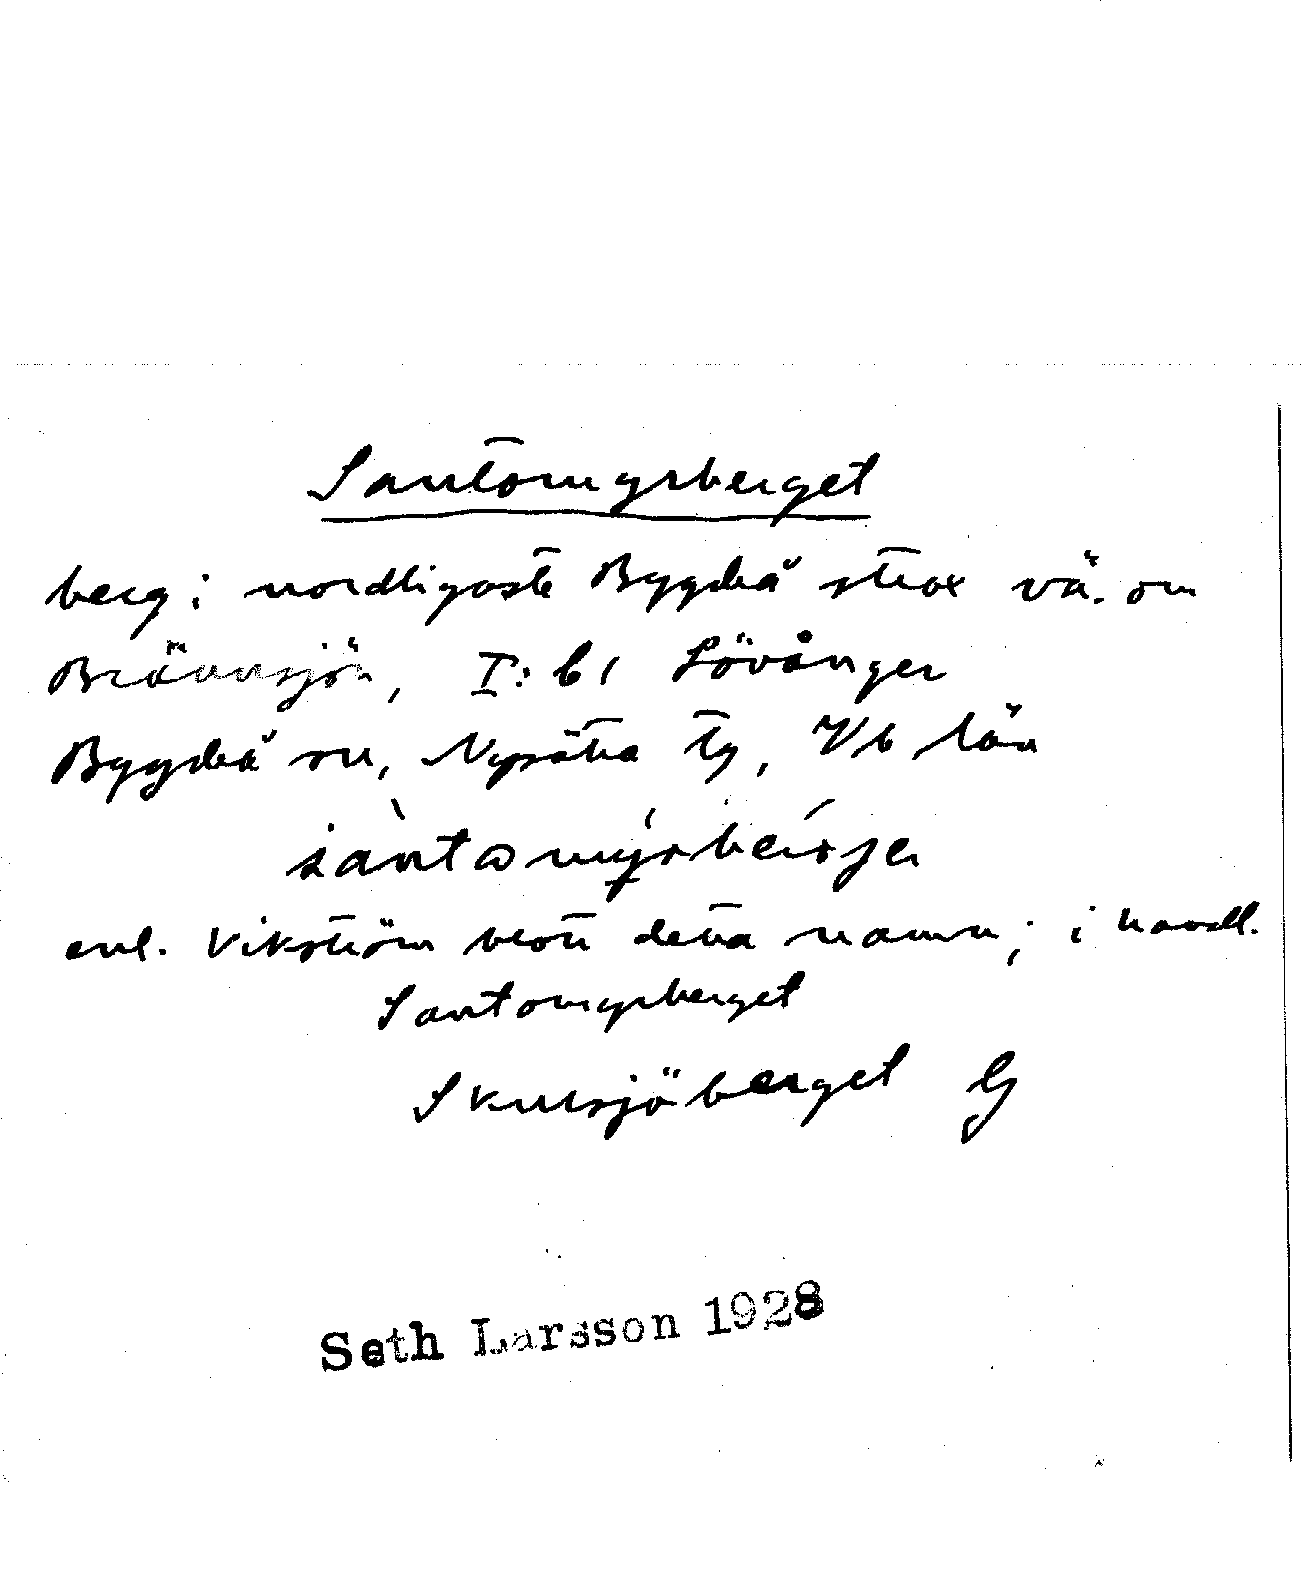 Santomyrberget
berg i nordligaste Bygdeå strax vä. om
Brännsjön, I: b1 Lövånger
Bygdeå sn, Nysätra tg, Vb län
enl. Vikström blott detta namn; i handl.
Santomyrberget
Skursjöberget G
Seth Larsson 1928